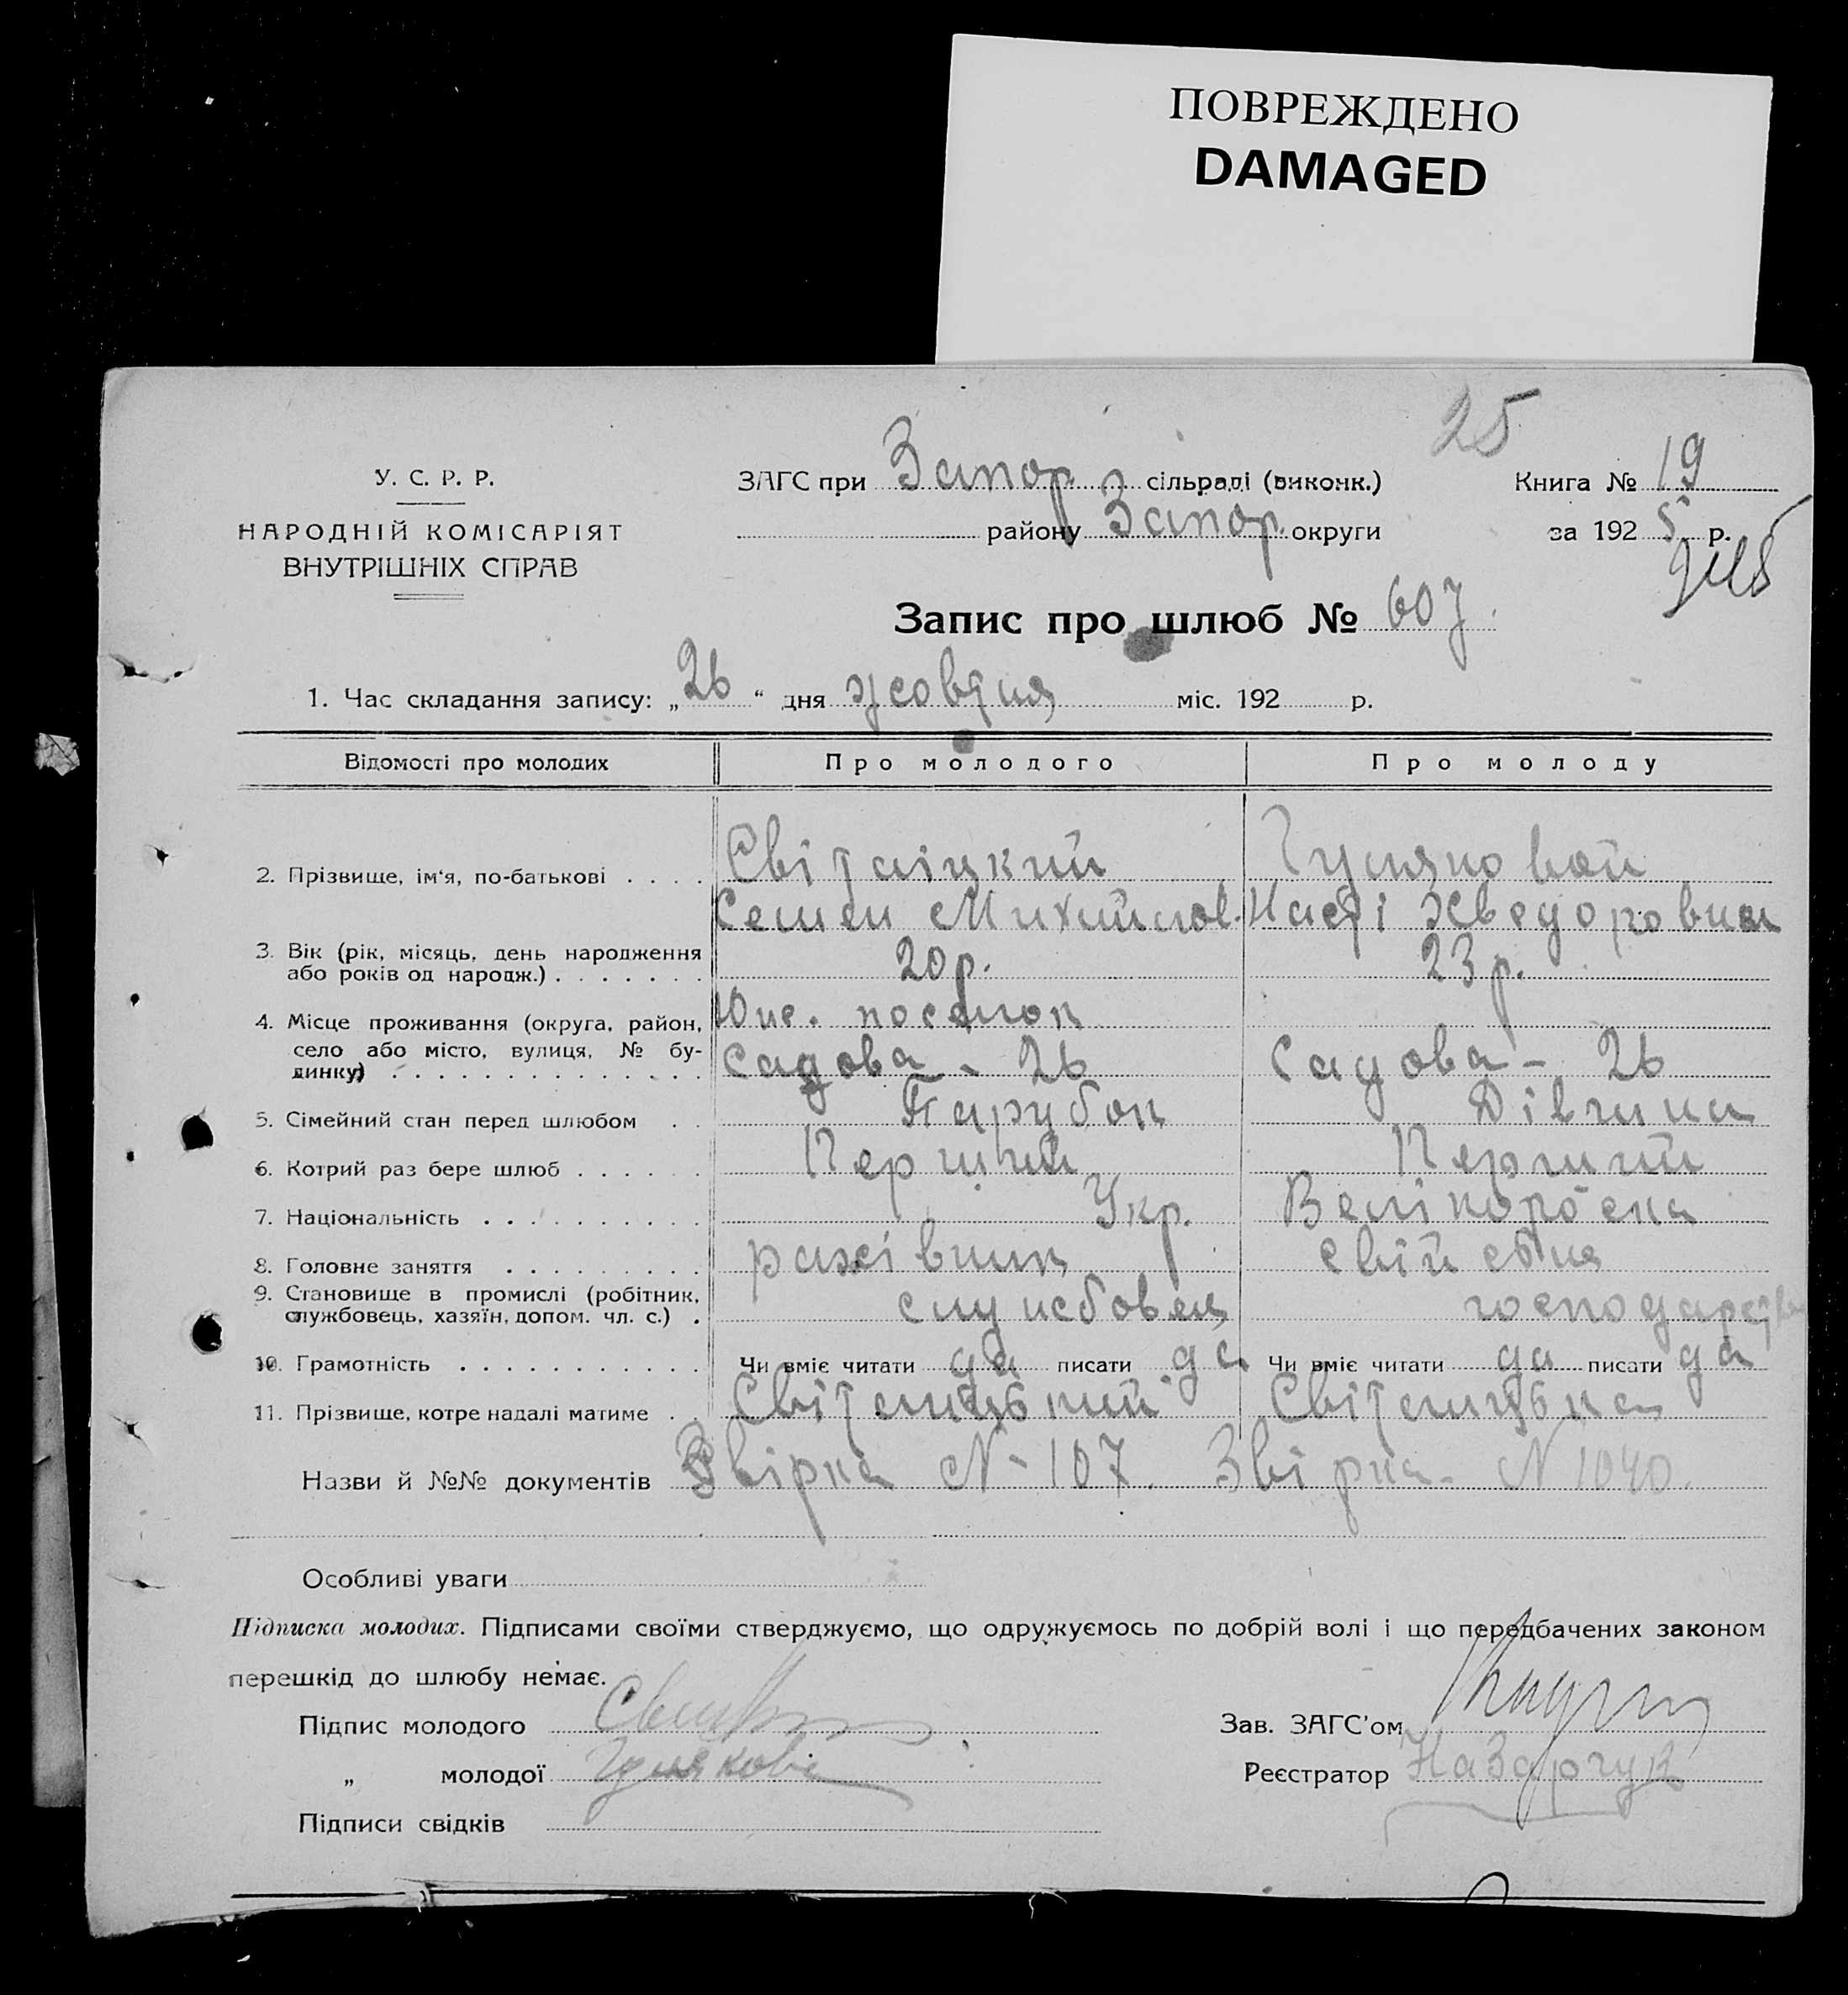 ПОВРЕЖДЕНО
DAMAGED
25
У. С. Р. Р.
НАРОДНІЙ КОМІСАРІЯТ
ВНУТРІШНІХ СПРАВ
ЗАГС при Запор сільраді (виконк.)
району Запор. округи
Книга № 19
за 1925 р.
Запис про шлюб № 607
1. Час складання запису: „26“ дня жовтня міс. 192 р.
Відомості про молодих Про молодого Про молоду
2. Прізвище, ім'я, по-батькові . . . . Світліцкий Гуляковой
Семен Михайлов. Насті Хведоровна
3. Вік (рік, місяць, день народження
або років од народж.) . . . . . . . 20р. 23р.
4. Місце проживання (округа, район, Юж. посьолок
село або місто, вулиця, № бу-
динку) . . . . . . . . . . . . . . Садова - 26 Садова - 26
5. Сімейний стан перед шлюбом . . Парубок Дівчина
6. Котрий раз бере шлюб . . . . . . Перший Перший
7. Національність . . . . . . . . . . Укр. Велікороска
8. Головне заняття . . . . . . . . . свійське
9. Становище в промислі (робітник,
службовець, хазяїн, допом. чл. с.) . службовец господарство
10. Грамотність . . . . . . . . . . . Чи вміє читати да писати да Чи вміє читати да писати да
11. Прізвище, котре надалі матиме . Світлицький Світлицька
Назви й №№ документів Звірка № 107. Звірка № 1040.
Особливі уваги
Підписка молодих. Підписами своїми стверджуємо, що одружуємось по добрій волі і що передбачених законом
перешкід до шлюбу немає.
Підпис молодого
Зав. ЗАГС'ом
„ молодої Гулякова
Реєстратор Назарчук
Підписи свідків